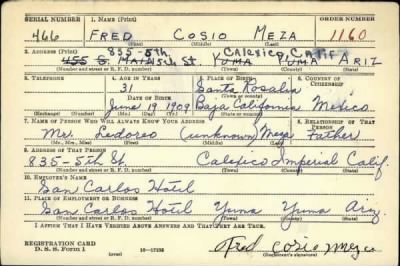 SERIAL NUMBER 1. NAME (Print) ORDER NUMBER
466 FRED COSIO MEZA 1160
(First) (Middle) (Last)
2. ADDRESS (Print) 835-5th. CALEXICO, CALIF
455 S. MAIN St. YUMA YUMA ARIZ
(Number and street or R. F. D. number) (Town) (County) (State)
3. TELEPHONE 4. AGE IN YEARS 5. PLACE OF BIRTH 6. COUNTRY OF CITIZENSHIP
31 Santa Rosalia
DATE OF BIRTH (Town or county)
June 19 1909 Baja California Mexico
(Exchange) (Number) (Mo.) (Day) (Yr.) (State or country)
7. NAME OF PERSON WHO WILL ALWAYS KNOW YOUR ADDRESS 8. RELATIONSHIP OF THAT PERSON
Mr. (unknown) Meza Father
(Mr., Mrs., Miss) (First) (Middle) (Last)
9. ADDRESS OF THAT PERSON
835-5th St Calexico Imperial Calif.
(Number and street or R. F. D. number) (Town) (County) (State)
10. EMPLOYER'S NAME
San Carlos Hotel
11. PLACE OF EMPLOYMENT OR BUSINESS
San Carlos Hotel Yuma Yuma Ariz.
(Number and street or R. F. D. number) (Town) (County) (State)
I AFFIRM THAT I HAVE VERIFIED ABOVE ANSWERS AND THAT THEY ARE TRUE.
REGISTRATION CARD
D. S. S. Form 1 (over) 16-17105 Fred Cosio Meza
(Registrant's signature)